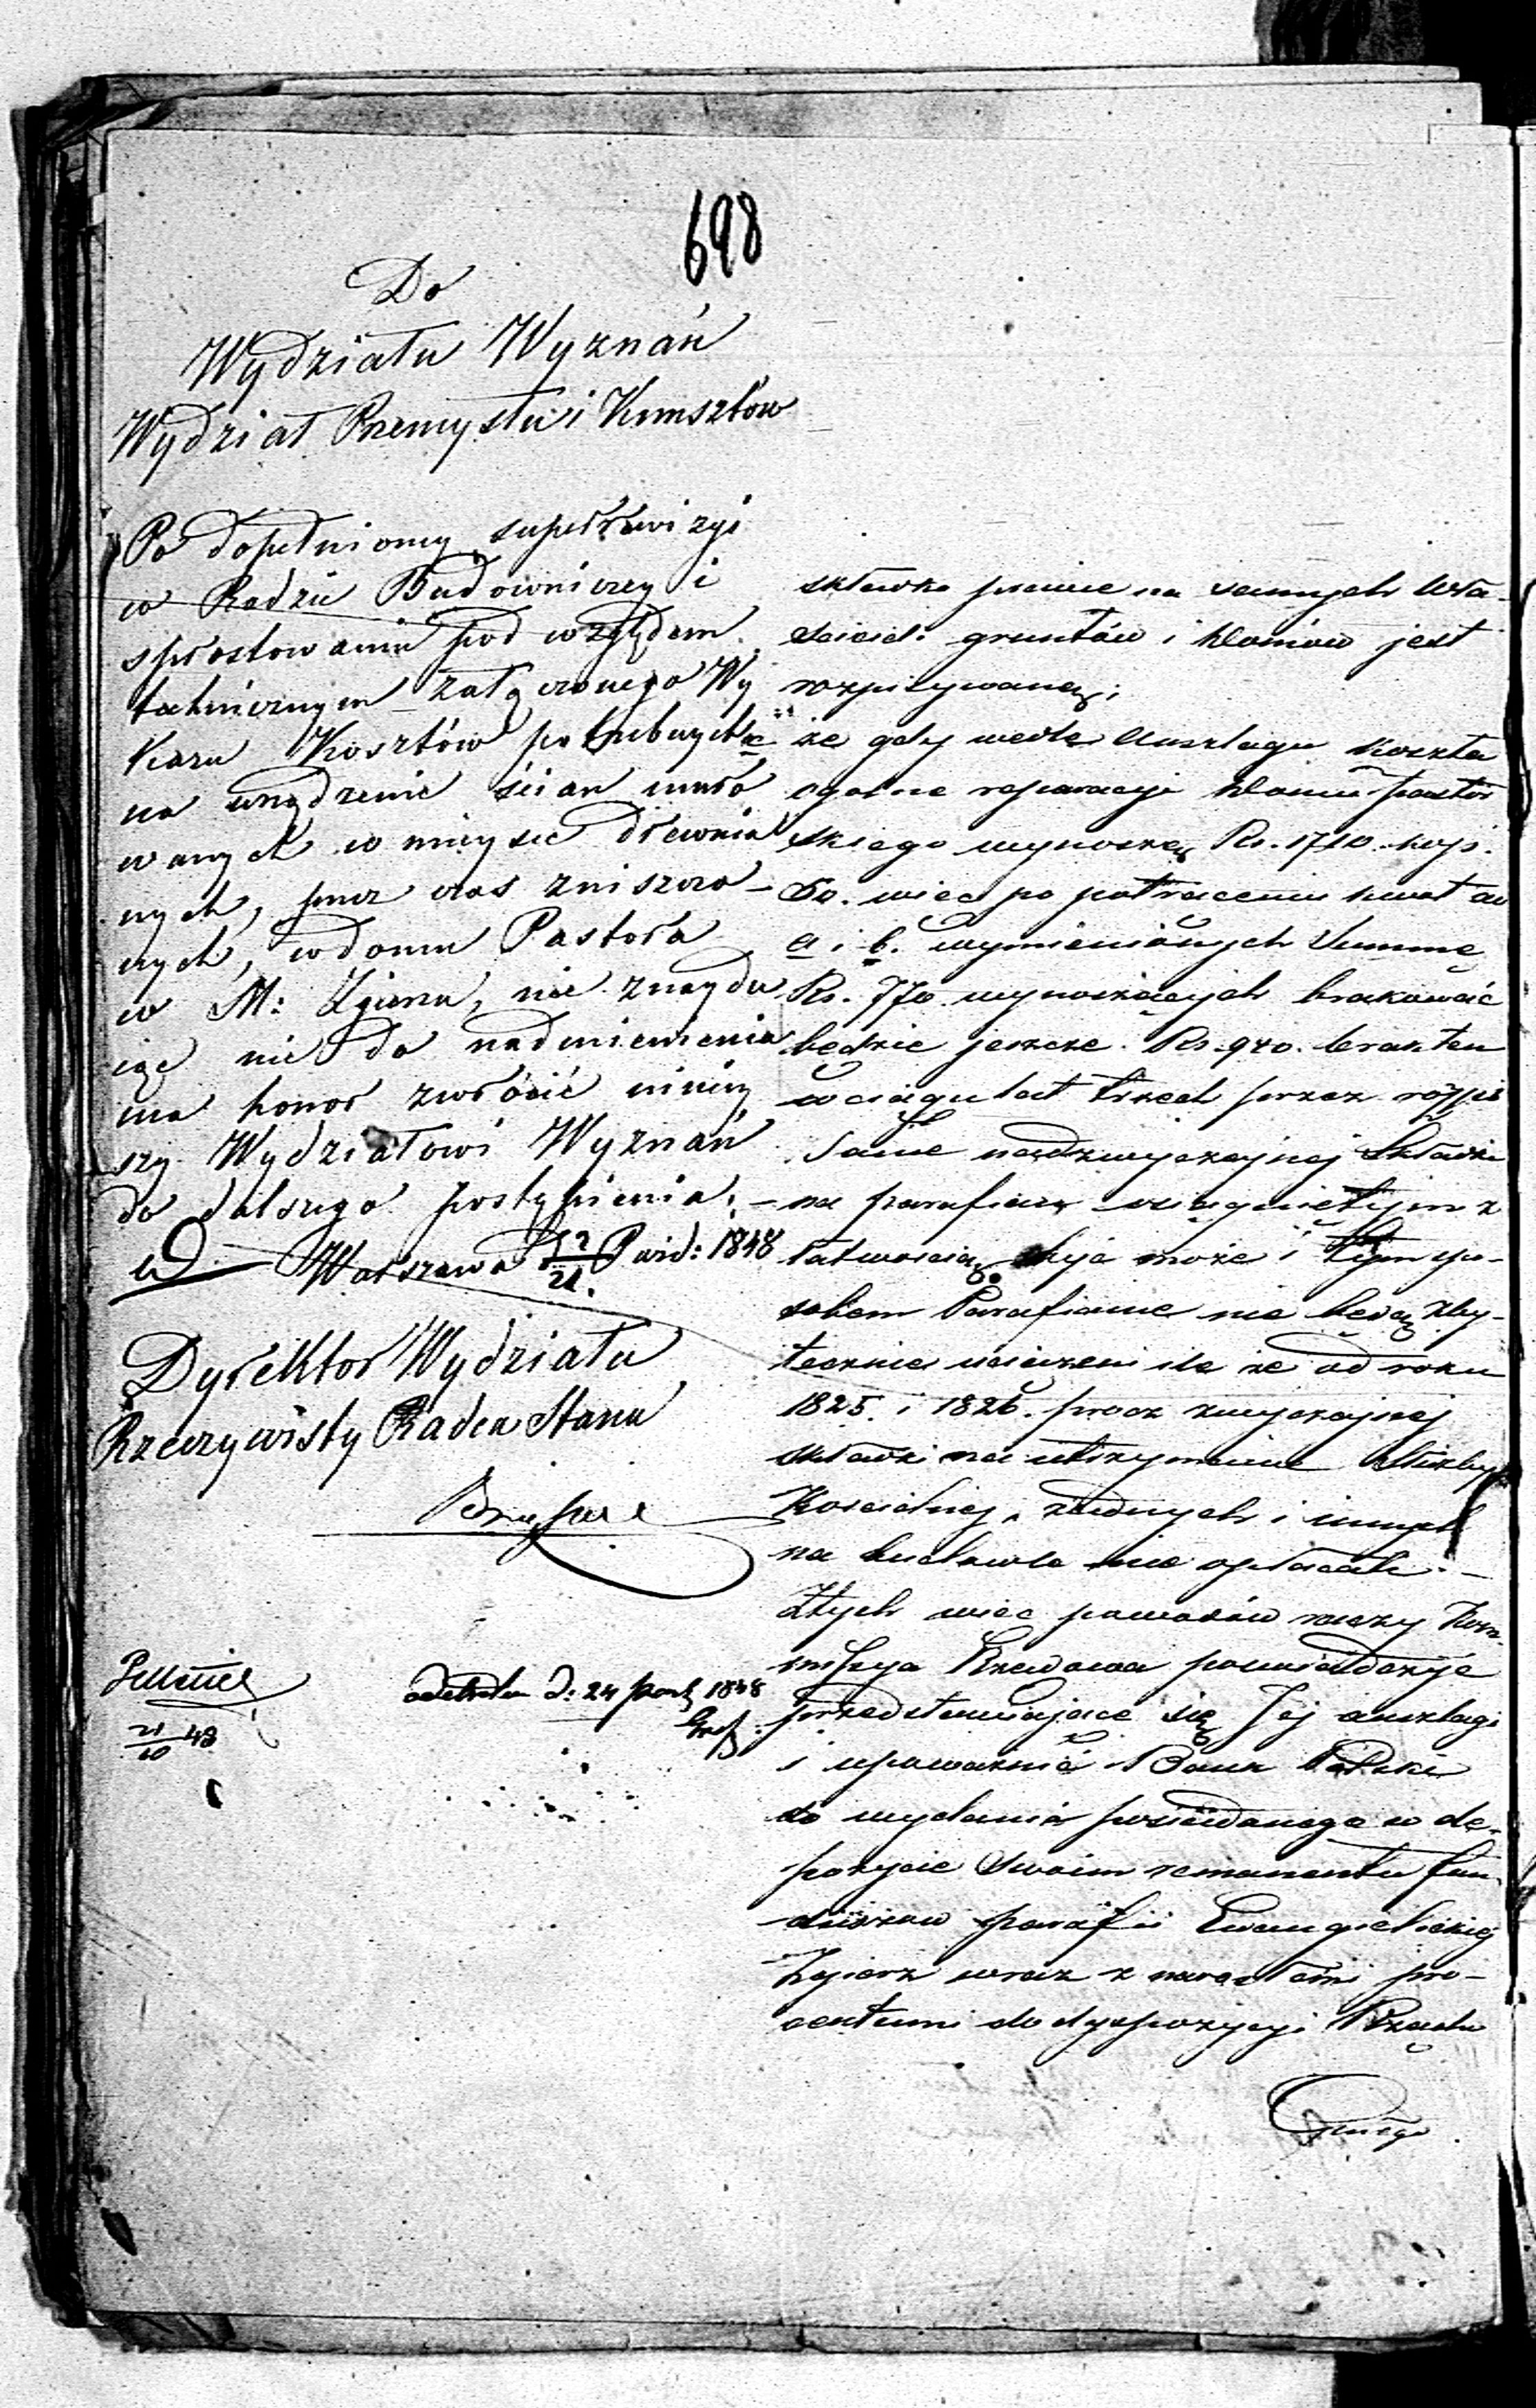 698
Do
Wydziału Wyznań
Wydział Przemysłu i Kunsztów
Po dopełnioney superrewizyi
w Radzie Budowniczey i
sprostowaniu pod względem
technicznym załączonego Wy
kazu Kosztów potrzebnych
na urządzenie ścian muro
wanych w mieysce drewnia
nych, przez czas zniszczo-
nych, w domu Pastora
w M: Zgierzu, nie znaydu
iąc nic do nadmienienia
ma honor zwrócić niniey
szy Wydziałowi Wyznań
do dalszego postąpienia. –
Warszawa d 9/21. Paźd: 1848
Dyrektor Wydziału
Rzeczywisty Radca Stanu
21/10 48
odebrałem d: 24 paźd 1848
składka prawie na samych wła-
ścicieli gruntów i domów jest
rozpisywaną;
c że gdy wedle anszlagu koszta
ogólne reparacyi domu pastor
skiego wynoszą Rs. 1710. kop.
50. więc po potrąceniu kwot ad
a i b. wymienionych Summę
Rs. 770. wynoszących brakować
będzie jeszcze Rs. 940. brak ten
w ciągu lat trzech przez rozpi
sanie nadzwyczajnej Składki
na parafian osiągniętym z
łatwością być może i tym spo-
sobem Parafianie nie będą zby-
tecznie uciążeni ile że od roku
1825. i 1826. prócz zwyczajnej
składki na utrzymanie Służby
Kościelnej, żadnych i innych
na budowle nie opłacali. –
Z tych więc powodów raczy Kom-
missya Rządowa potwierdzić
przedstawiające się Jej anszlagi
i upoważnić Bank Polski
do wydania posiadanego w de-
pozycie swoim remanentu fun-
duszów parafii Ewangielickiej
Zgierz wraz z narosłemi pro-
centami do dyspozycyi Rządu